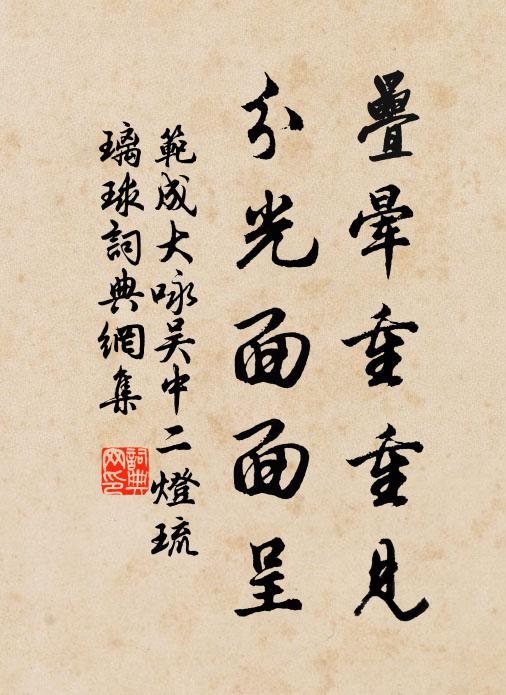 疊暈重重見
分光面面呈
範成大咏吴中二燈琉
璃球詞典網集
詞典
网印